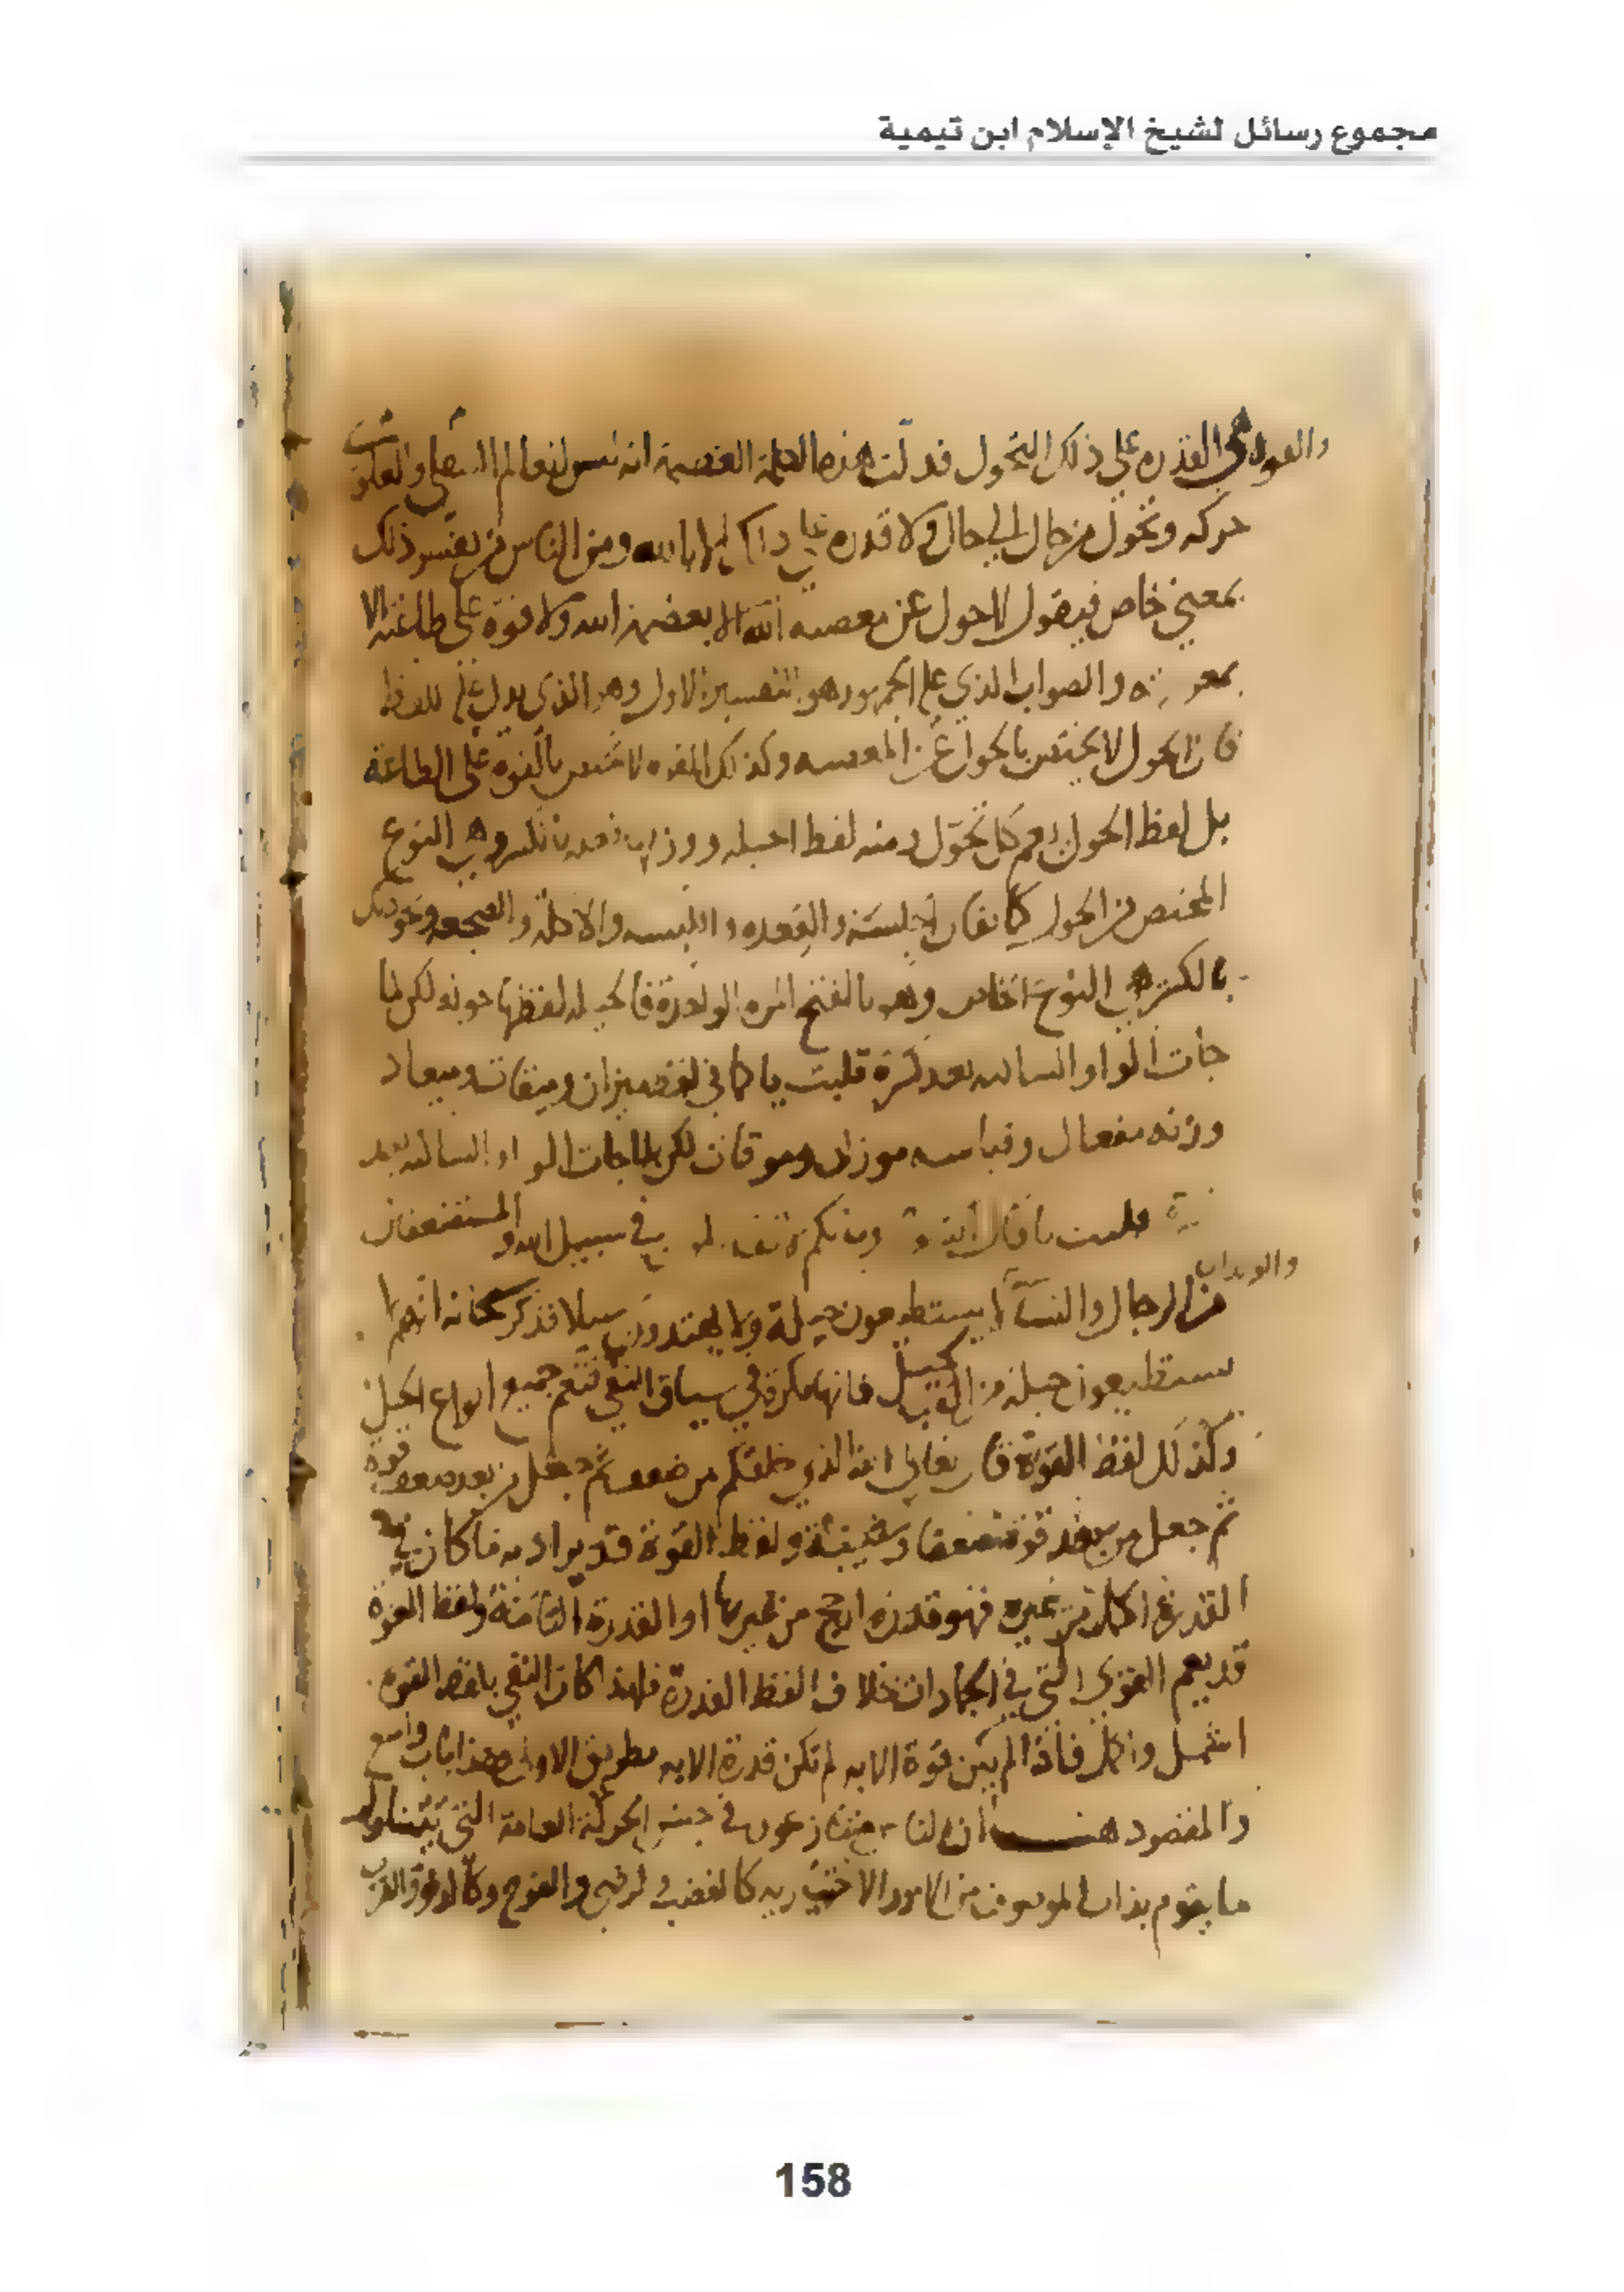 مجموع رسائل لشيخ الإسلام ابن تيمية
والقوة هي القدرة على ذلك التحول فدلت هذه الكلمة العظيمة انه ليس للعالم العلوي والسفلي
حركه وتحول من حال الى حال ولا قدره على ذلك الا بالله ومن الناس من يفسر ذلك
بمعنى خاص فيقول لا حول عن معصيه الله الا بعصمة الله ولا قوة على طاعته الا
بمعونته والصواب الذي عليه الجمهور هو التفسير الاول وهو الذي يدل عليه اللفظ
فان الحول لا يختص بالحول عن المعصيه وكذلك القوه لا تختص بالقوه على الطاعة
بل لفظ الحول يعم كل تحول ومنه لفظ الحيله ووزنها فعله بالكسر وهي النوع
المختص من الحول كما يقال الجلسة والقعده واللبسه والاكلة والضجعه ونحو ذلك
بالكسر هي النوع الخاص وهو بالفتح المره الواحدة فالحيله لفظها حوله لكن لما
جات الواو الساكنه بعد كسرة قلبت ياء كما في لفظ ميزان وميقات وميعاد
وزنه مفعال وقياسه موزان وموقات لكن لما جات الواو الساكنه بعد
كسرة قلبت ياء قال في سبيل الله والمستضعفين
والولدان
من الرجال والنسآ لا يستطيعون حيلة ولا يهتدون سبيلا فذكر سبحانه انهم لا
يستطيعون حيلة من الحيل فانها نكرة في سياق النفي فتعم جميع انواع الحيل
وكذلك لفظ القوة قال تعالى الله الذي خلقكم من ضعف ثم جعل من بعد ضعف قوة
ثم جعل من بعد قوة ضعفا وشيبة ولفظ القوة قد يراد به ما كان في
القدرة اكمل من غيره فهو قدرة ارجح من غيرها او القدرة التامة ولفظ القوة
قد يعم القوى التي في الجمادات بخلاف لفظ القدرة فلهذا كان النفي بلفظ القوه
اشمل واكمل فاذا لم يكن قوة الا به لم تكن قدرة الا به بطريق الاولى وهذا باب واسع
والمقصود هنا ان الناس متنازعون في جنس الحركة العامة التي تتناول
ما يقوم بذات الموصوف من الامور الاختيارية كالغضب والرضى والفرح وكالدنو والقرب
158